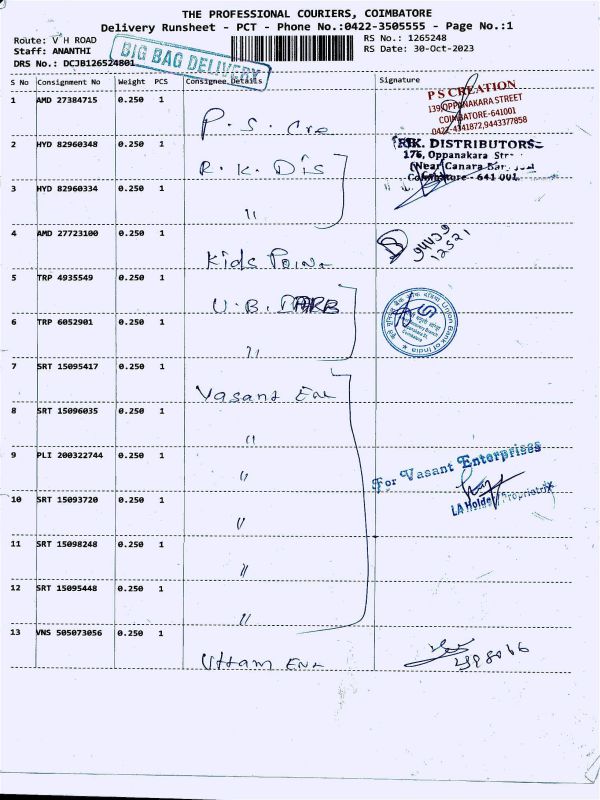 THE PROFESSIONAL COURIERS, COIMBATORE
Delivery Runsheet - PCT - Phone No.:0422-3505555 - Page No.:1
Route: V H ROAD
RS No.: 1265248
Staff: ANANTHI
RS Date: 30-Oct-2023
DRS No.: DCJB126524801
BIG BAG DELIVERY
S No Consignment No Weight PCS Consignee Details Signature
1 AMD 27384715 0.250 1
P.S. Cre
P S CREATION
139, OPPANAKARA STREET
COIMBATORE-641001
0422-4341872,9443377858
2 HYD 82960348 0.250 1
R.K. Dis
R.K. DISTRIBUTORS
176, Oppanakara
(Near Canara
Coimbatore - 641 001.
3 HYD 82960334 0.250 1
"
4 AMD 27723100 0.250 1
Kids Poin
94439
12521
5 TRP 4935549 0.250 1
U.B.
Union Bank of India
6 TRP 6052901 0.250 1
"
7 SRT 15095417 0.250 1
Vasant Ent
8 SRT 15096035 0.250 1
"
9 PLI 200322744 0.250 1
"
For Vasant Enterprises
LA Holder Proprietrix
10 SRT 15093720 0.250 1
"
11 SRT 15098248 0.250 1
"
12 SRT 15095448 0.250 1
"
13 VNS 505073056 0.250 1
Uttam Ent